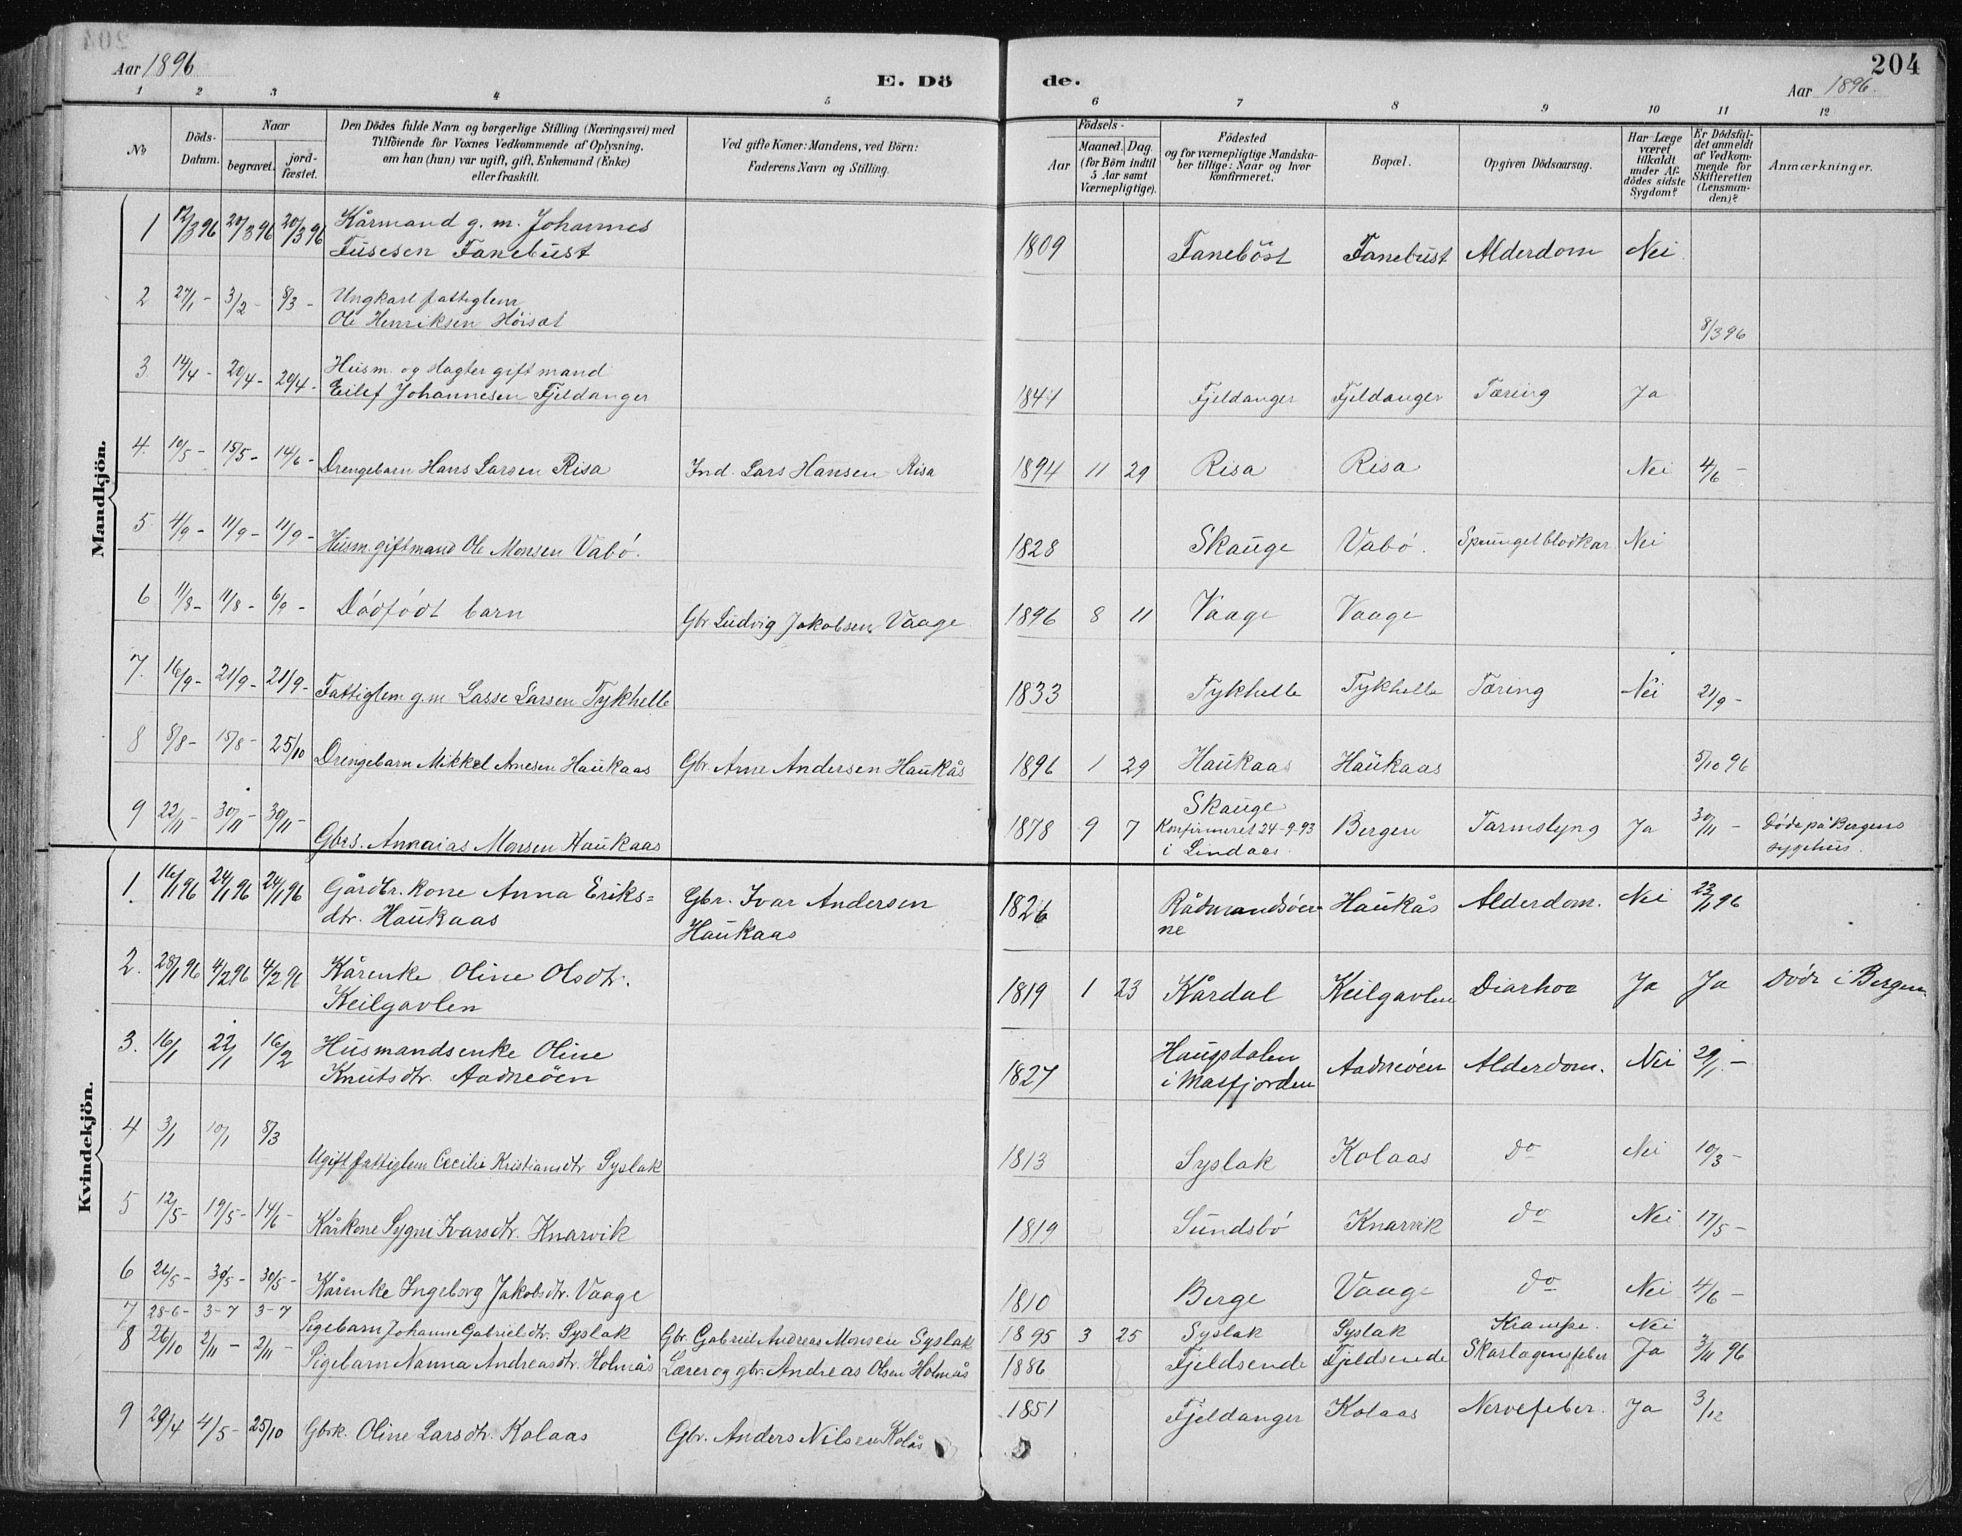 204
Aar 1896
E. Dö de.
Aar 1896.
1 2 3 4 5 6 7 8 9 10 11 12
No
Döds-Datum.
Naar
begravet.
jord-fæstet.
Den Dödes fulde Navn og borgerlige Stilling (Næringsvei) med
Tilföiende for Voxnes Vedkommende af Oplysning,
om han (hun) var ugift, gift, Enkemand (Enke)
eller fraskilt.
Ved gifte Koner: Mandens, ved Börn:
Faderens Navn og Stilling.
Födsels-
Aar
Maaned. Dag.
(for Börn indtil
5 Aar samt
Værnepligtige).
Födested
og for værnepligtige Mandska-
ber tillige: Naar og hvor
konfirmeret.
Bopæl.
Opgiven Dödsaarsag.
Har Læge
været
tilkaldt
under Af-
dödes sidste
Sygdom?
Er Dödsfal-
det anmeldt
af Vedkom-
mende for
Skifteretten
(Lensman-
den)?
Anmærkninger.
Mandkjön.
1 12/3 96 20/3 96 20/3 96 Kårmand g. m. Johannes
Fusesen Fanebust 1809 Faneböst Fanebust Alderdom Nei
2 27/1 - 3/2 - 8/3 - Ungkarl fattiglem
Ole Henriksen Höisæt 8/3 96
3 14/4 - 20/4 - 20/4 - Husm. og slagter gift mand
Eilef Johannesen Fjeldanger 1847 Fjeldanger Fjeldanger Tæring Ja
4. 10/5 - 15/5 - 14/6 - Drengebarn Hans Larsen Risa Ind. Lars Hansen Risa 1894 11 29 Risa Risa Nei 4/6 -
5 4/9 - 11/9 - 11/9 - Husm. giftmand Ole Monsen Vabö. 1828 Skauge Vabö. Sprunget blodkar Nei
6 11/8 - 11/8 - 6/9 - Dödfödt barn Gbr Ludvig Jakobsen Vaage 1896 8 11 Vaage Vaage
7. 16/9 - 21/9 - 21/9 - Fattiglem g.m Lasse Larsen Tykhelle 1833 Tykhelle Tykhelle Tæring Nei 21/9 -
8 8/8 - 15/8 - 25/10 Drengebarn Mikkel Arnesen Haukaas Gbr. Arne Andersen Haukås 1896 1 29 Haukaas Haukaas 5/10 96
9 22/11 - 30/11 - 30/11 - Gbrs. Annaias Monsen Haukaas 1878 9 7 Skauge
Konfirmeret 24-9-93
i Lindaas. Bergen Tarmslyng Ja 30/11 - Döde på Bergens
sygehus.
Kvindekjön.
1. 16/1 96 24/1 96 24/1 96 Gårdbr. kone Anna Eriks=
dtr. Haukaas Gbr. Ivar Andersen
Haukaas 1826 Rådmandsöen
ne Haukås Alderdom. Nei 23/1 96
2. 28/1 96 4/2 96 4/2 96 Kårenke Oline Olsdtr.
Keilgavlen 1819 1 23 Kårdal Keilgavlen Diarhoe Ja Ja Död i Bergen.
3. 16/1 22/1 16/2 Husmandsenke Oline
Knutsdtr. Aadneöen 1827 Haugsdalen
i Masfjorden Aadneöen Alderdom. Nei 29/1 -
4 3/1 10/1 8/3 Ugift fattiglem Cecilie Kristiansdtr Syslak 1813 Syslak Kolaas do Nei 10/3 -
5 12/5 - 19/5 - 14/6 - Kårkone Sygni Ivarsdtr. Knarvik 1819 Sundsbö Knarvik do Nei 17/5 -
6 26/5 - 30/5 - 30/5 - Kårenke Ingeborg Jakobsdtr. Vaage 1810 Berge Vaage do Nei 4/6 -
7 28-6- 3-7 3-7 Pigebarn Johanne Gabrieldtr. Syslak Gbr. Gabriel Andreas Monsen Syslak 1895 3 25 Syslak Syslak Krampe. Nei
8 26/10 2/11 - 2/11 - Pigebarn Nanna Andreasdtr. Holmås Lærer og gbr. Andreas Olsen Holmås 1886 Fjeldsende Fjeldsende Skarlagensfeber Ja 3/11 96
9 29/4 4/5 - 25/10 Gbrk. Oline Larsdtr. Kolaas Gbr. Anders Nilsen Kolås 1851 Fjeldanger Kolaas Nervefeber. Ja 3/12